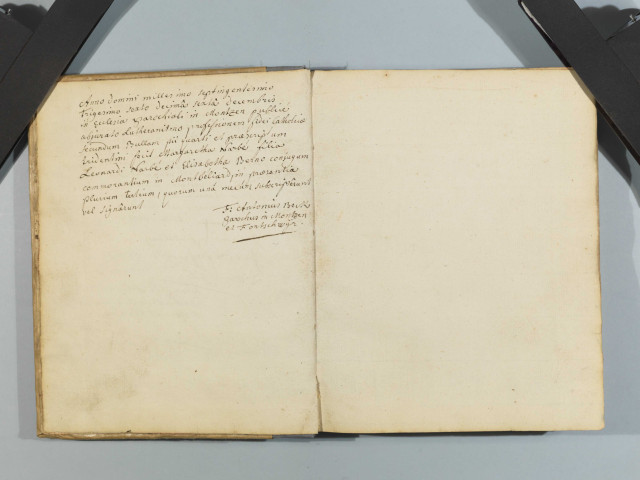 Anno domini millesimo septingentesimo
Trigesimo sexto decima sexta decembris
in Ecclesia parochiali in Montzen publice
abjurato Lutheranismo professionem fidei catholicae
secundum Bullam pii quarti et praescriptum
tridentini fecit Margaretha Narbé filia
Leonardi Narbé et Elisabetha Berno conjugum
commorantium in Montbeliard in praesentia
plurium testium, quorum una mecum subscripserunt
vel signarunt
Fr Antonius Beck
parochus in Montzen
et Fortschwyr